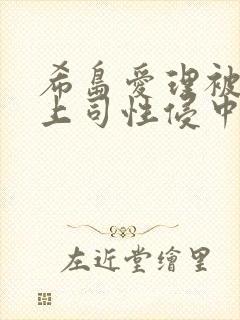 希島愛理被
上司性侵中
左近堂繪里